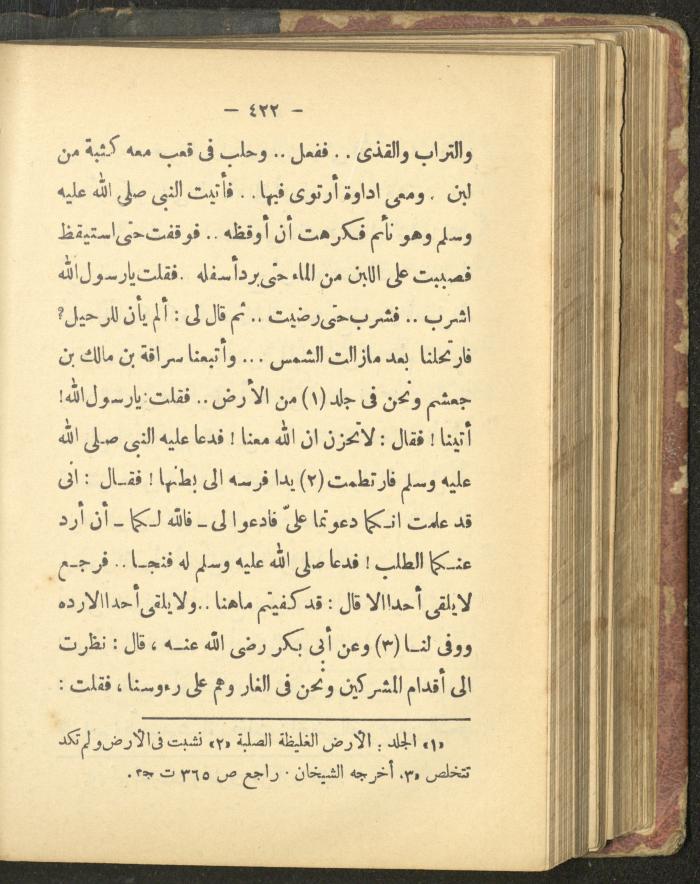 — ٤٢٢ —
والتراب والقذى . . ففعل . . وحلب فى قعب معه كثبة من
لبن . ومعى اداوة أرتوى فيها . . فأتيت النبى صلى الله عليه
وسلم وهو نأئم فكرهت أن أوقظه . . فوقفت حتى استيقظ
فصببت على اللبن من الماء حتى برد أسفله . فقلت يارسول الله
اشرب . . فشرب حتى رضيت . . ثم قال لى : ألم يأن للرحيل ؟
فارتحلنا بعد مازالت الشمس . . . وأتبعنا سراقة بن مالك بن
جعشم ونحن فى جلد (١) من الأرض . . فقلت : يارسول الله !
أتينا ! فقال : لاتحزن ان الله معنا ! فدعا عليه النبى صلى الله
عليه وسلم فارتطمت (٢) يدا فرسه الى بطنها ! فقال : انى
قد علمت انكما دعوتما علىّ فادعوا لى ـ فالله لكما ـ أن أرد
عنكما الطلب ! فدعا صلى الله عليه وسلم له فنجا . . فرجع
لايلقى أحدا الا قال : قد كفيتم ماهنا . . ولا يلقى أحدا الا رده
ووفى لنا (٣) وعن أبى بكر رضى الله عنه ، قال : نظرت
الى أقدام المشركين ونحن فى الغار وهم على رءوسنا ، فقلت :
«١» الجلد : الأرض الغليظة الصلبة «٢» نشبت فى الأرض ولم تكد
تتخلص «٣» أخرجه الشيخان . راجع ص ٣٦٥ ت ج٢ .